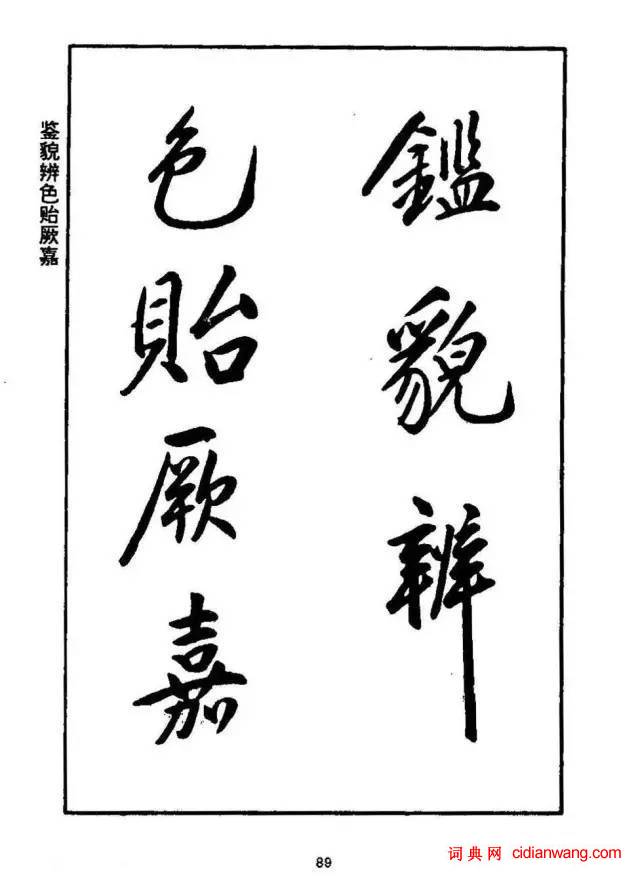 鑑貌辨
色貽厥嘉
鉴貌辨色贻厥嘉
89
词典网 cidianwang.com